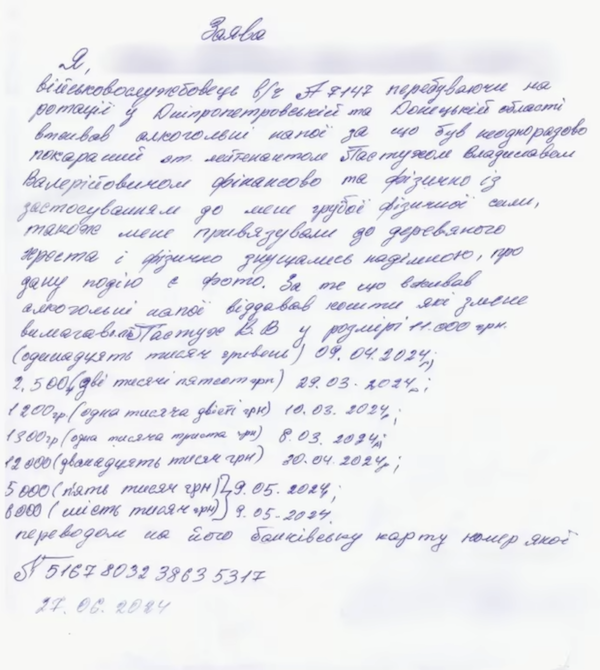 Заява
Я,
військовослужбовець в/ч А7147 перебуваючи на
ротації у Дніпропетровській та Донецькій області
вживав алкогольні напої за що був неодноразово
покараний ст. лейтенантом Пастухом Владиславом
Валерійовичом фінансово та фізично із
застосуванням до мене грубої фізичної сили,
також мене привязували до деревяного
хреста і фізично знущались наділмною, про
дану подію є фото. За те що вживав
алкогольні напої віддавав кошти які змене
вимагав Пастух В.В у розмірі 11.000 грн.
(одинадцять тисяч гривень) 09.04.2024р;
2.500 (дві тисячі пятсот грн) 29.03.2024р;
1200гр (одна тисяча двісті грн) 10.03.2024р;
1300гр (одна тисяча триста грн) 8.03.2024р;
12000 (дванадцять тисяч грн) 20.04.2024р;
5000 (пять тисяч грн) 9.05.2024;
6000 (шість тисяч грн) 9.05-2024.
переводом на його банківську карту номер якої
№ 5167 8032 3863 5317
27.06.2024